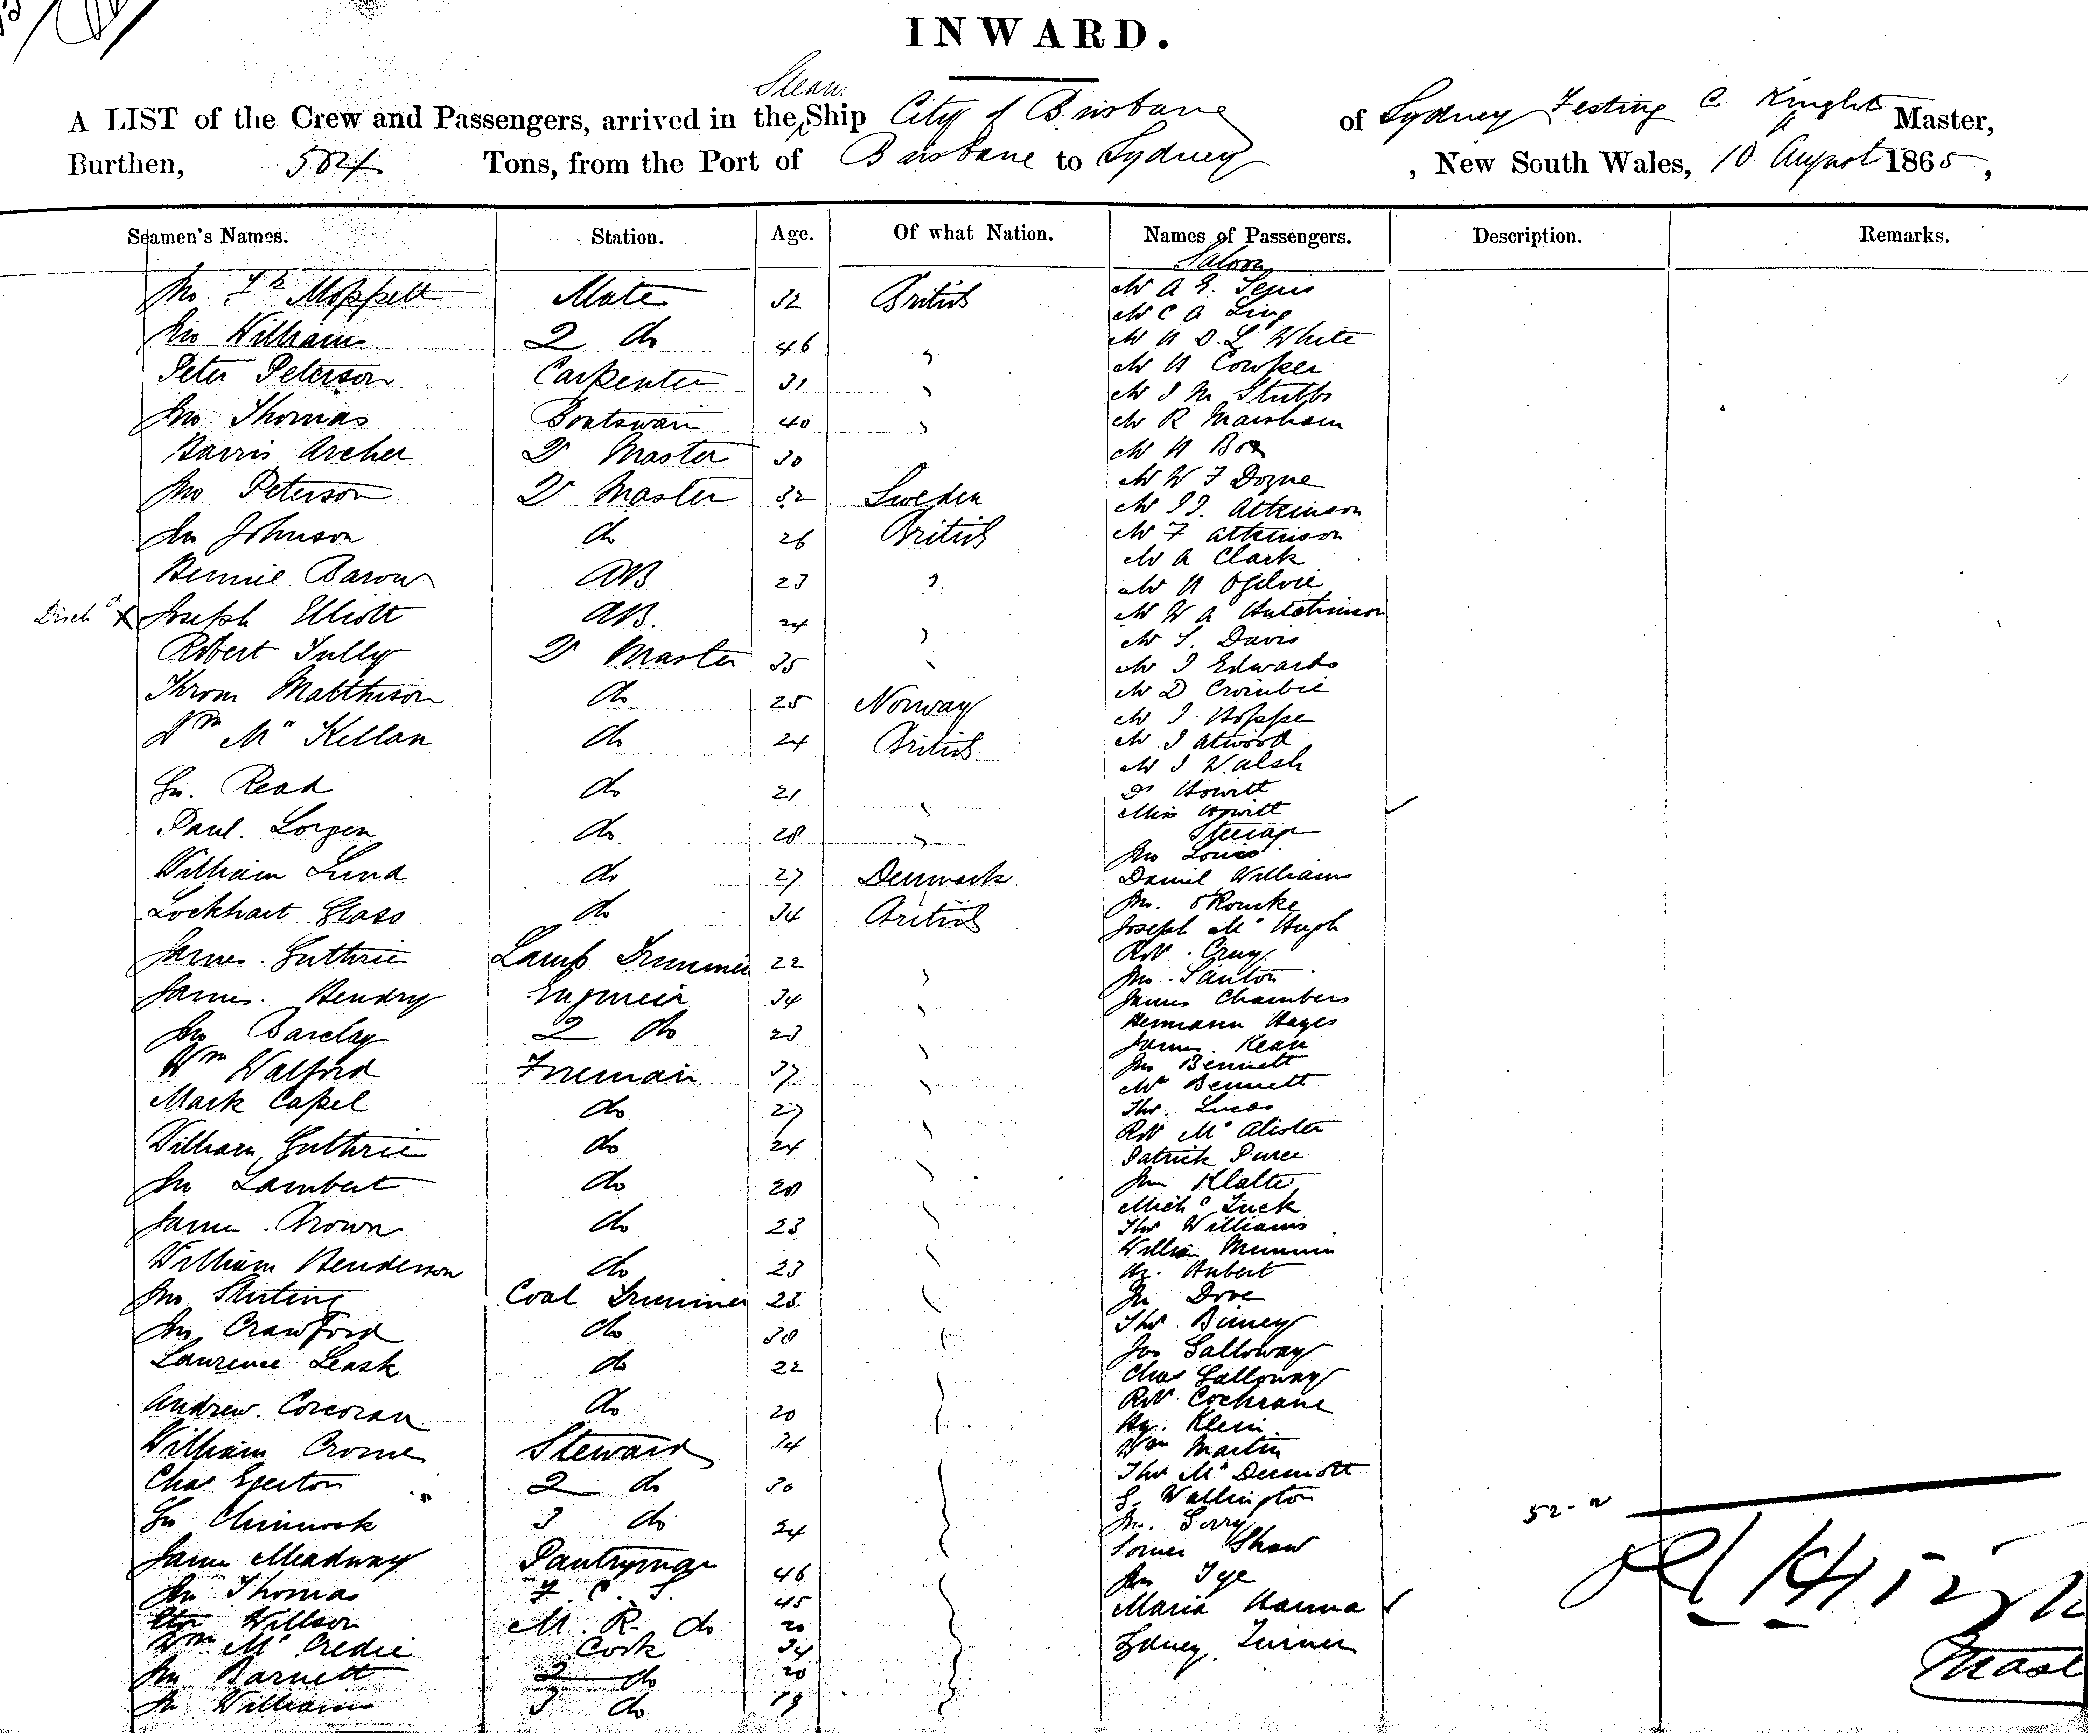 INWARD.
Steam
A LIST of the Crew and Passengers, arrived in the Ship City of Brisbane of Sydney C. Knight Master,
Burthen, 504 Tons, from the Port of Brisbane to Sydney, New South Wales, 10 August 1865,
Seamen's Names. Station. Age. Of what Nation. Names of Passengers. Description. Remarks.
Saloon
Jno Moppett Mate 32 British
Mr C A Ling
Jno Williams 2 do 46 Mr A D L White
Peter Peterson Carpenter 31 Mr A Cowper
Mr J M Stubbs
Jno Thomas Boatswain 40 Mr R Marsham
Harris Archer Qr Master 30 Mr H Box
Mr W F Doyne
Jno Peterson Qr Master 32 Sweden Mr J J. Atkinson
Jn Johnson do 26 British Mr F Atkinson
Mr A Clark
23 Mr A Ogilvie
Disch X Joseph Elliott AB. 24 Mr W A Hutchinson
Mr S. Davis
Robert Tully Qr Master 35 Mr J Edwards
Matthison do 25 Norway Mr D Crombie
Mr J Hoppe
Wm Mc Kellan do 24 British Mr J Atwood
Mr J Walsh
Read do 21 Dr Howitt
Miss Howitt
Paul do 28 Steerage
Jno Louis
William Lund do 27 Denmark Daniel Williams
Lockhart Glass do 34 British Jno. O'Rourke
Joseph Mc Hugh
James Guthrie Lamp Trimmer 22
James Hendry Engineer 34 James Chambers
Jno Barclay 2 do 23 Hermann Hayes
James Kean
Wm Walford Fireman 37 Jno Bennett
Mrs Bennett
Mark Capel do 27 Thos. Lucas
Robt Mc Alister
William Guthrie do 24 Patrick
Jn Lambert do 28
Michl Tuck
James Brown do 23 Thos Williams
William
William Henderson do 23 Hy. Hubert
Jno Stirling Coal Trimmer 23 Jn Dove
Jn Crawford do 30 Thos. Binney
Laurence Leask do 22 Jas Galloway
Chas Galloway
Andrew Corcoran do 20 Robt Cochrane
Hy. Klein
William Crome Steward 34 Wm Martin
Chas Egerton 2 do 30 Thos Mc Dermott
Wallington
Chinnock 3 do 24
James Meadway Pantryman 46 Shaw
Jn Thomas F. C. S. 45 Jno Tye
Willson M. R. do 20 Maria Hanna
Wm Mc Credie Cook 34 Sydney Turner
Jn Barnett 2 do 20
Jn Williams 3 do 19
52